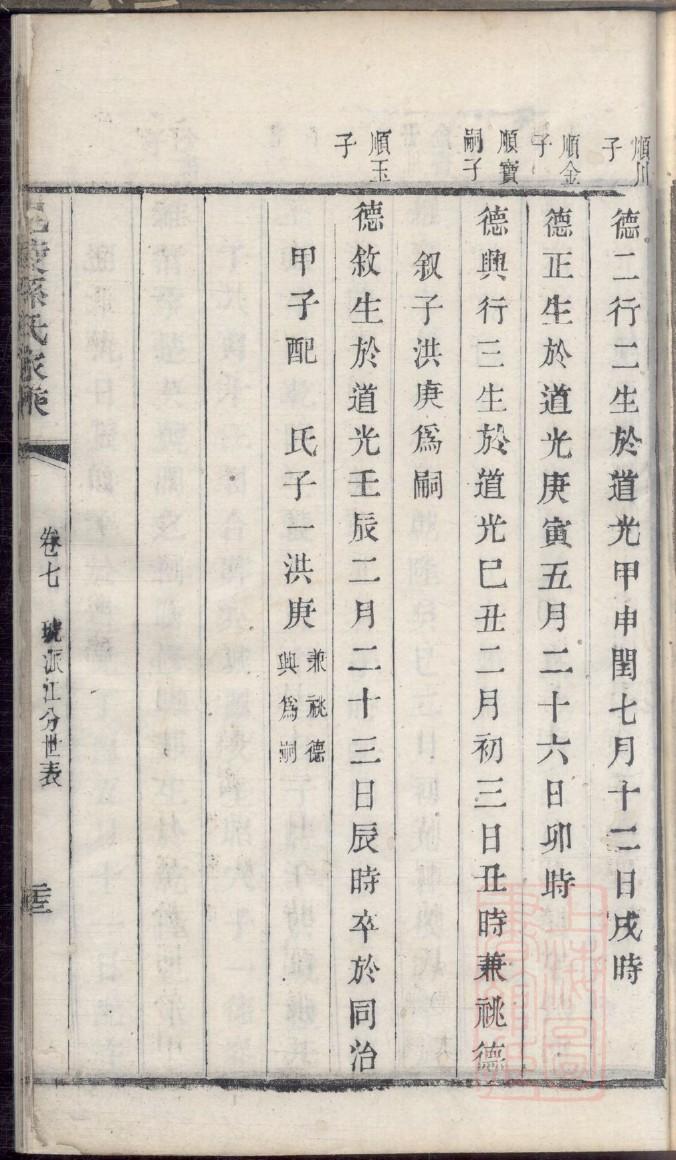 順川子
德二行二生於道光甲申閏七月十二日戌時
順金子
德正生於道光庚寅五月二十六日卯時
順寶嗣子
德興行三生於道光巳丑二月初三日丑時兼祧德
叙子洪庚爲嗣
順玉子
德敘生於道光壬辰二月二十三日辰時卒於同治
甲子配 氏子一洪庚兼祧德興爲嗣
陵孫氏家乘
卷七 琥派江分世表